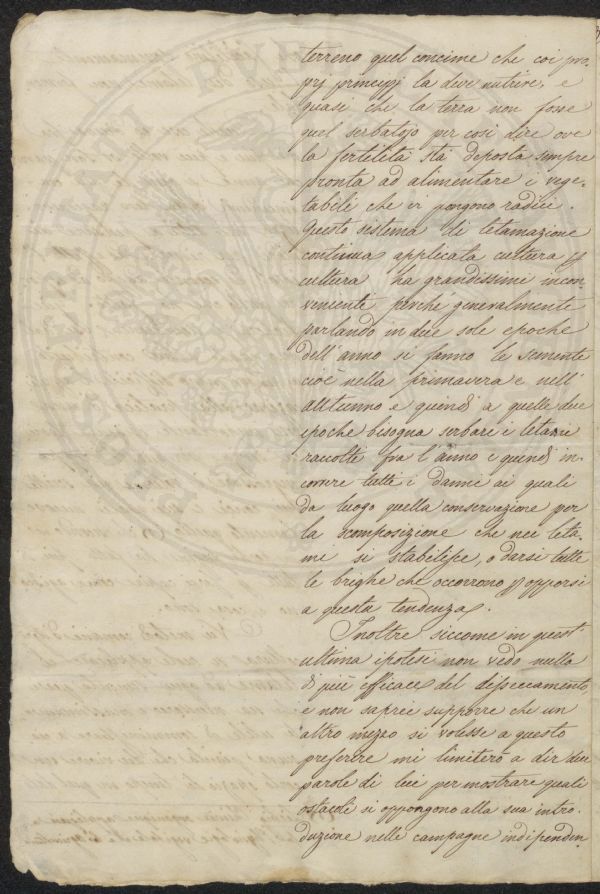 terreno quel concime che coi pro-
prj principj la deve nutrire, e
quasi che la terra non fosse
quel serbatojo per così dire ove
la fertelità sta deposta sempre
pronta ad alimentare i vege-
tabili che vi pongono radici.
Questo sistema di letamazione
continua applicata cultura p
cultura ha grandissimi incon-
veniente perché generalmente
parlando in due sole epoche
dell'anno si fanno le semente
cioè nella primavera e nell'
auttunno e quindi a quelle due
epoche bisogna serbare i letami
raccolti fra l'anno e quindi in-
correre tutti i danni ai quali
da luogo quella conservazione per
la scomposizione che nei leta-
mi si stabilisce, o darsi tutte
le brighe che occorrono p opporsi
a questa tendenza.
Inoltre siccome in quest'
ultima ipotesi non vedo nulla
di più efficace del disseccamento
e non saprei supporre che un
altro mezzo si volesse a questo
preferire mi limiterò a dir due
parole di lui per mostrare quali
ostacoli si oppongono alla sua intro-
duzione nelle campagne indipenden